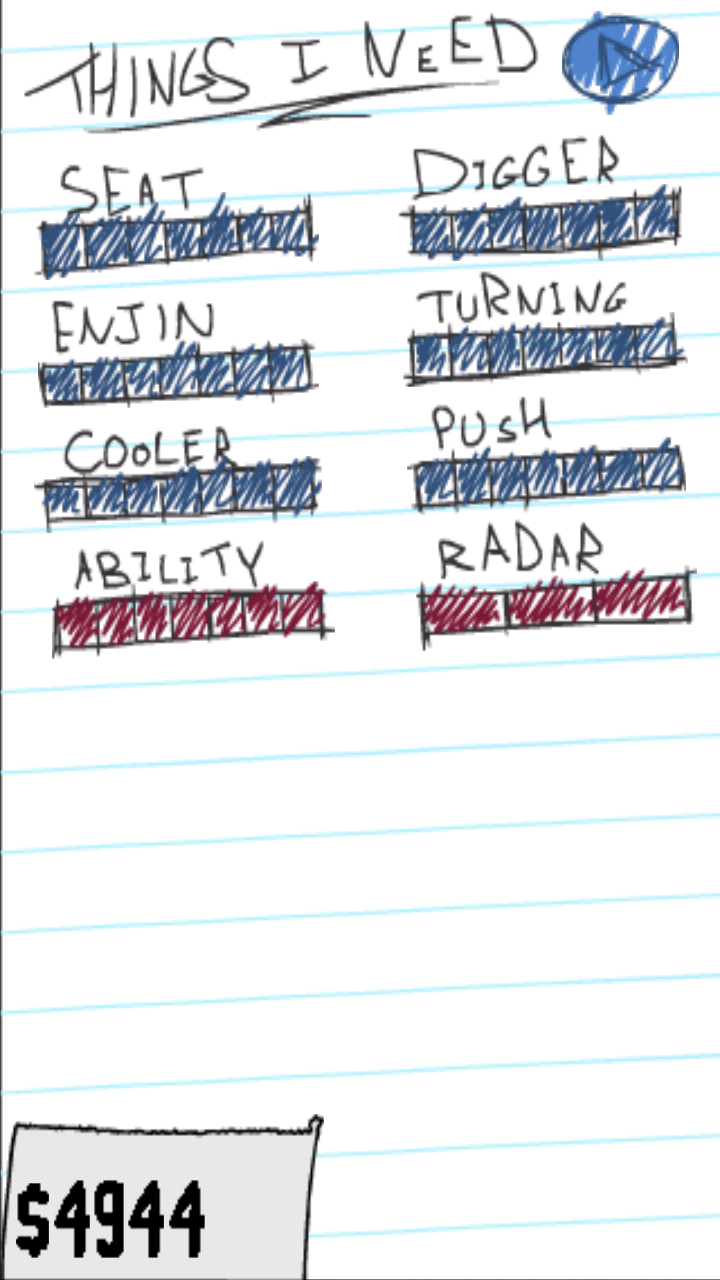 THINGS I NEED
SEAT DIGGER
ENJIN TURNING
COOLER PUSH
ABILITY RADAR
$4944